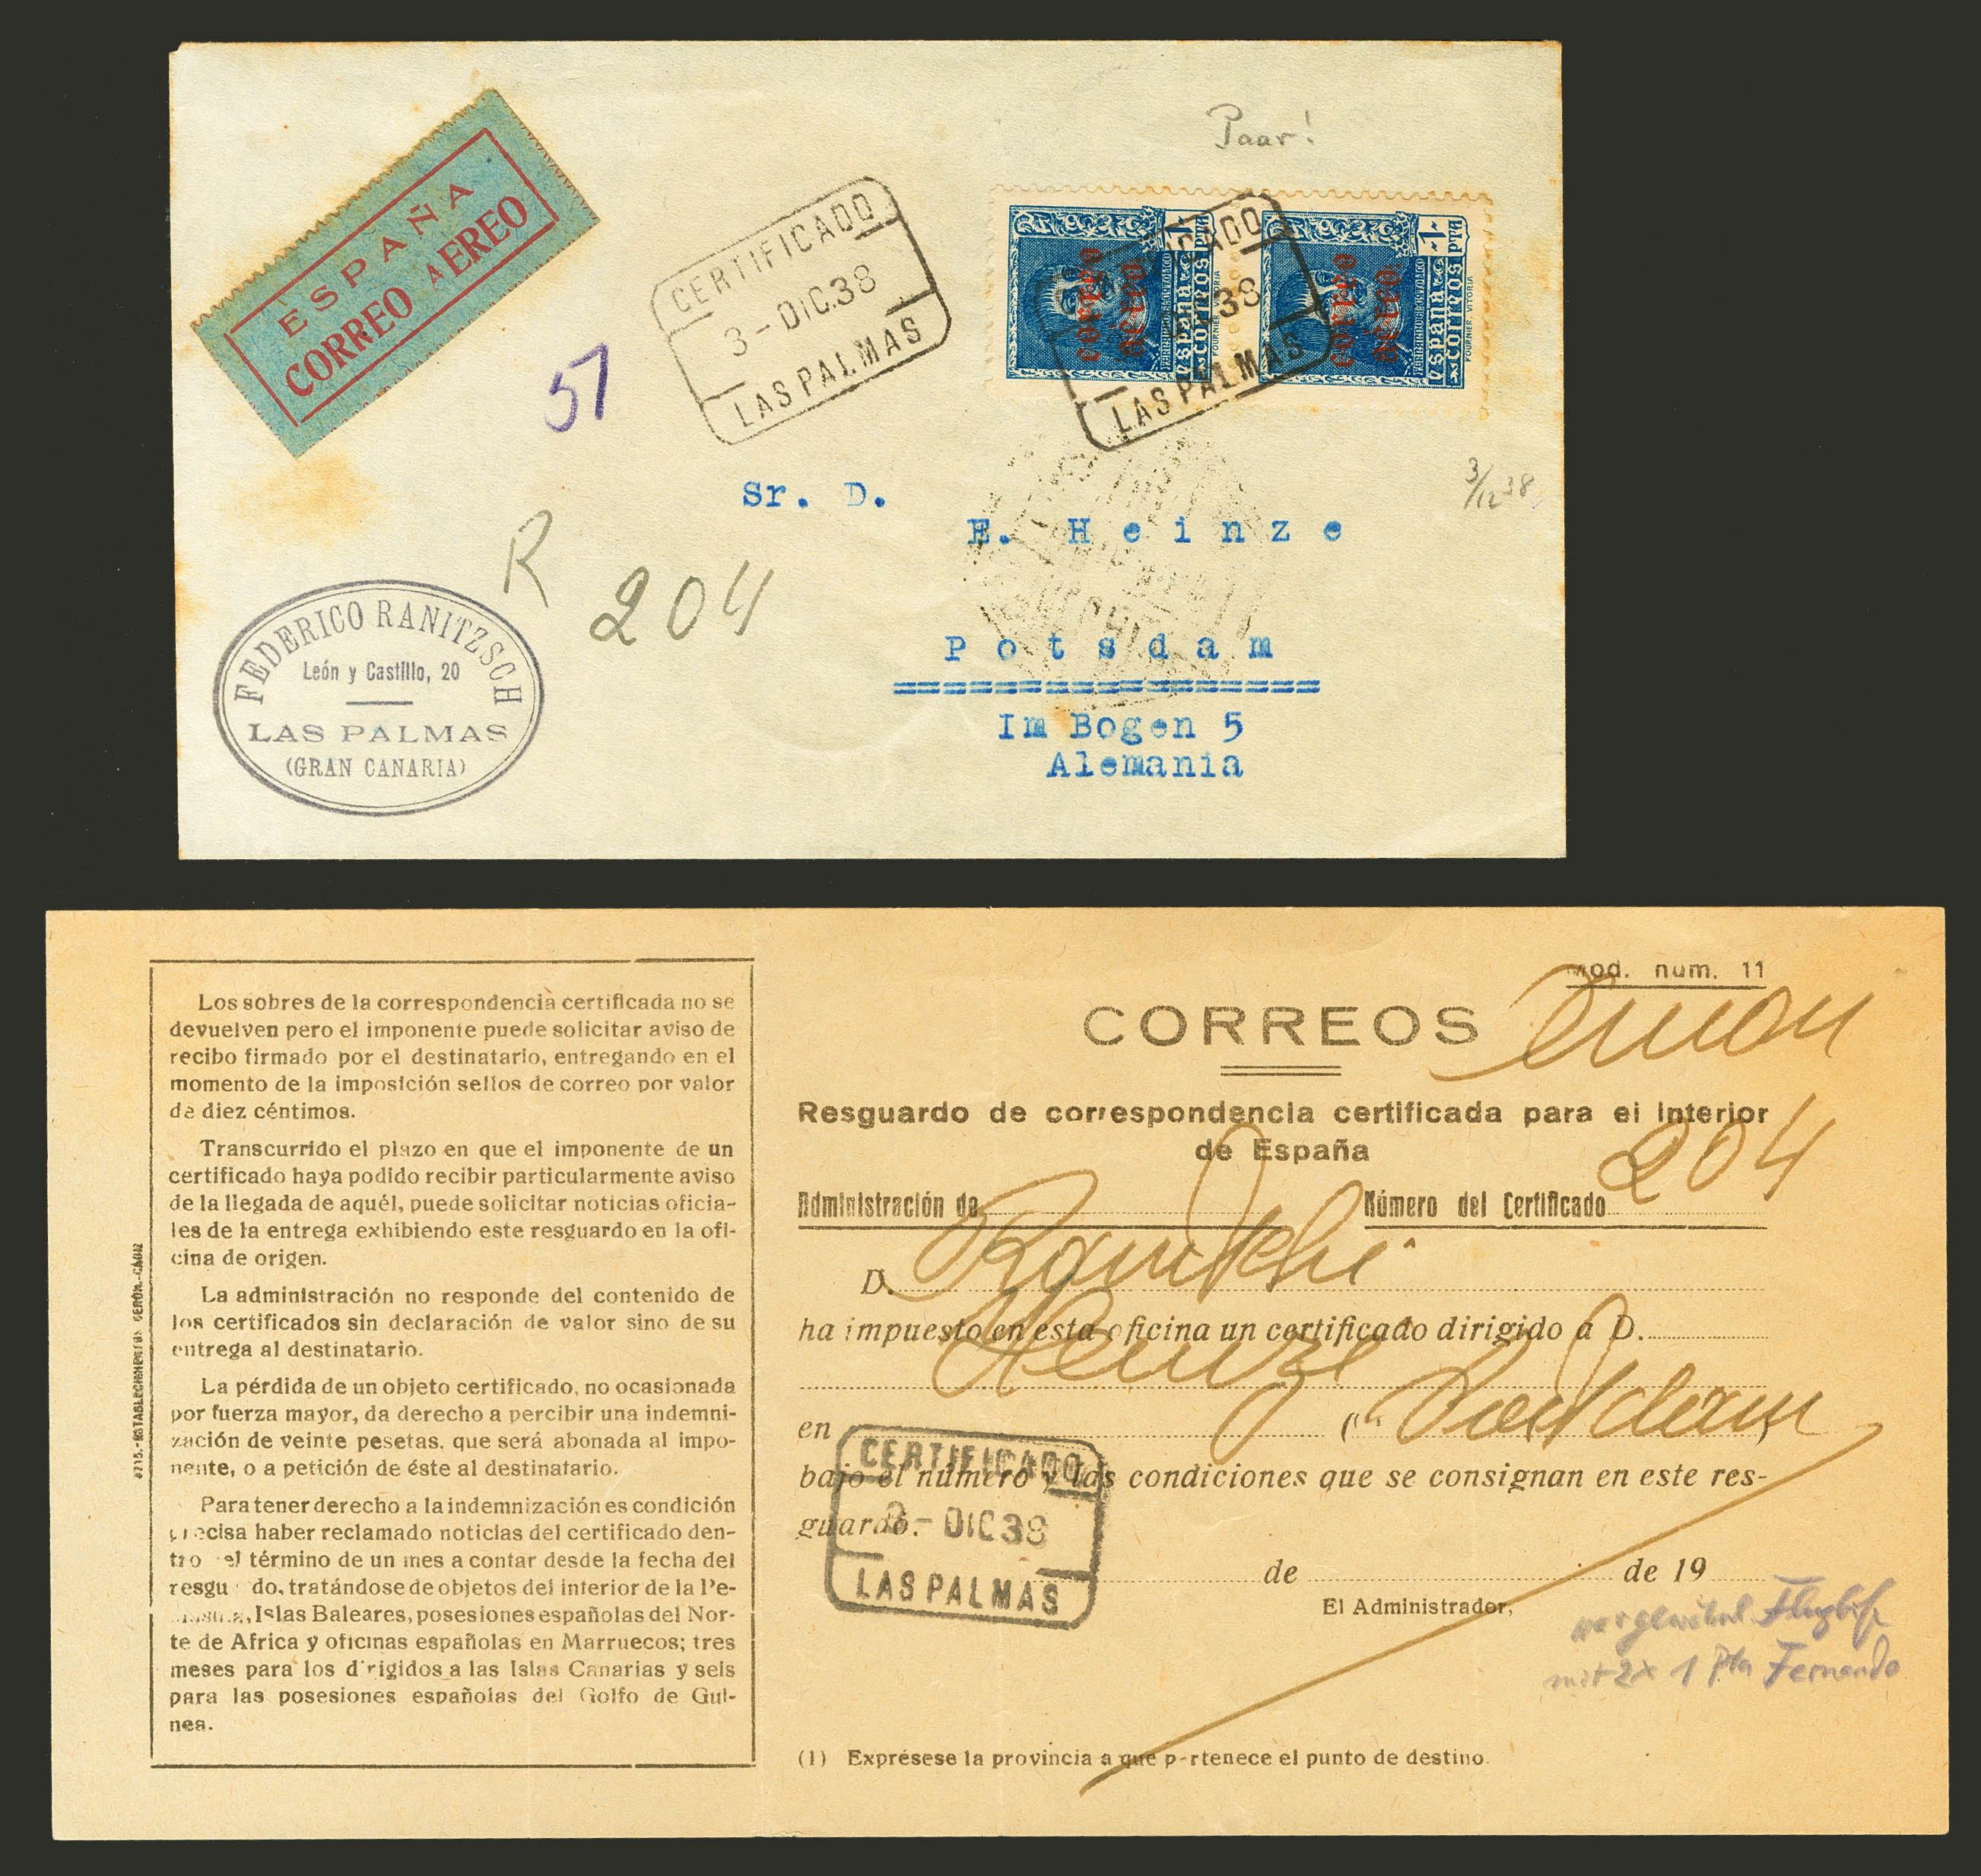 Paar!
ESPAÑA
CORREO AEREO
CERTIFICADO
3-DIC.38
LAS PALMAS
CERTIFICADO
38
LAS PALMAS
1
PTA
correo
aéreo
FERNANDO EL CATOLICO
españa
correos
FOURNIER. VITORIA
-1-
PTA
correo
aéreo
FERNANDO EL CATOLICO
españa
correos
FOURNIER. VITORIA
57
3/12 38
Sr. D.
E. Heinze
R
204
Potsdam
=================
Im Bogen 5
Alemania
FEDERICO RANITZSCH
León y Castillo, 20
LAS PALMAS
(GRAN CANARIA)
Los sobres de la correspondencia certificada no se
devuelven pero el imponente puede solicitar aviso de
recibo firmado por el destinatario, entregando en el
momento de la imposición sellos de correo por valor
de diez céntimos.
Transcurrido el plazo en que el imponente de un
certificado haya podido recibir particularmente aviso
de la llegada de aquél, puede solicitar noticias oficia-
les de la entrega exhibiendo este resguardo en la ofi-
cina de origen.
La administración no responde del contenido de
los certificados sin declaración de valor sino de su
entrega al destinatario.
La pérdida de un objeto certificado, no ocasionada
por fuerza mayor, da derecho a percibir una indemni-
zación de veinte pesetas, que será abonada al impo-
nente, o a petición de éste al destinatario.
Para tener derecho a la indemnización es condición
precisa haber reclamado noticias del certificado den-
tro el término de un mes a contar desde la fecha del
resgu do, tratándose de objetos del interior de la Pe-
Islas Baleares, posesiones españolas del Nor-
te de Africa y oficinas españolas en Marruecos; tres
meses para los dirigidos a las Islas Canarias y seis
para las posesiones españolas del Golfo de Gui-
nea.
mod. num. 11
CORREOS
Resguardo de correspondencia certificada para el interior
de España
204
Administración de
Número del Certificado
D.
ha impuesto en esta oficina un certificado dirigido a D.
Heinze
en
Potsdam
bajo el número y las condiciones que se consignan en este res-
guardo.
CERTIFICADO
3-DIC 38
LAS PALMAS
de
de 19
El Administrador,
mit 2x 1 Pta Fernando
(1) Exprésese la provincia a que pertenece el punto de destino.